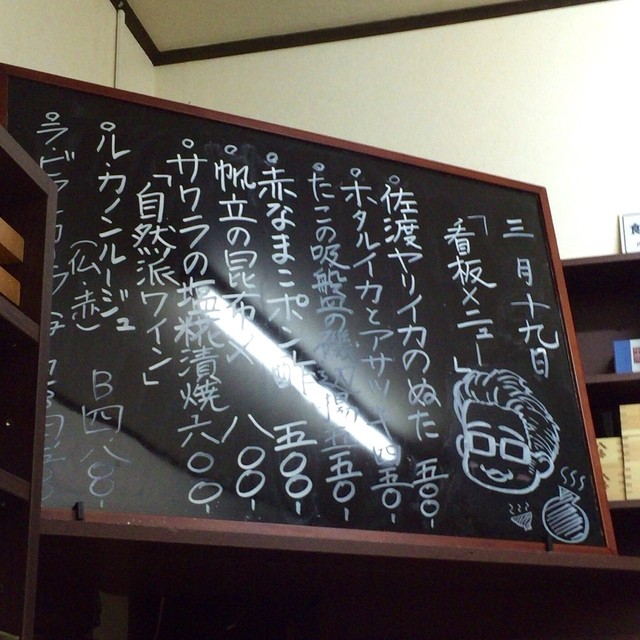 三月十九日
「看板メニュー」
佐渡ヤリイカのぬた 五〇〇-
ホタルイカとアサツキ 四五〇-
たこの吸盤の 揚 五五〇-
赤なまこポン酢 五〇〇-
帆立の昆布〆 八〇〇-
サワラの塩糀漬焼 六〇〇-
「自然派ワイン」
ル・カノン ルージュ (仏・赤) B四八〇〇-